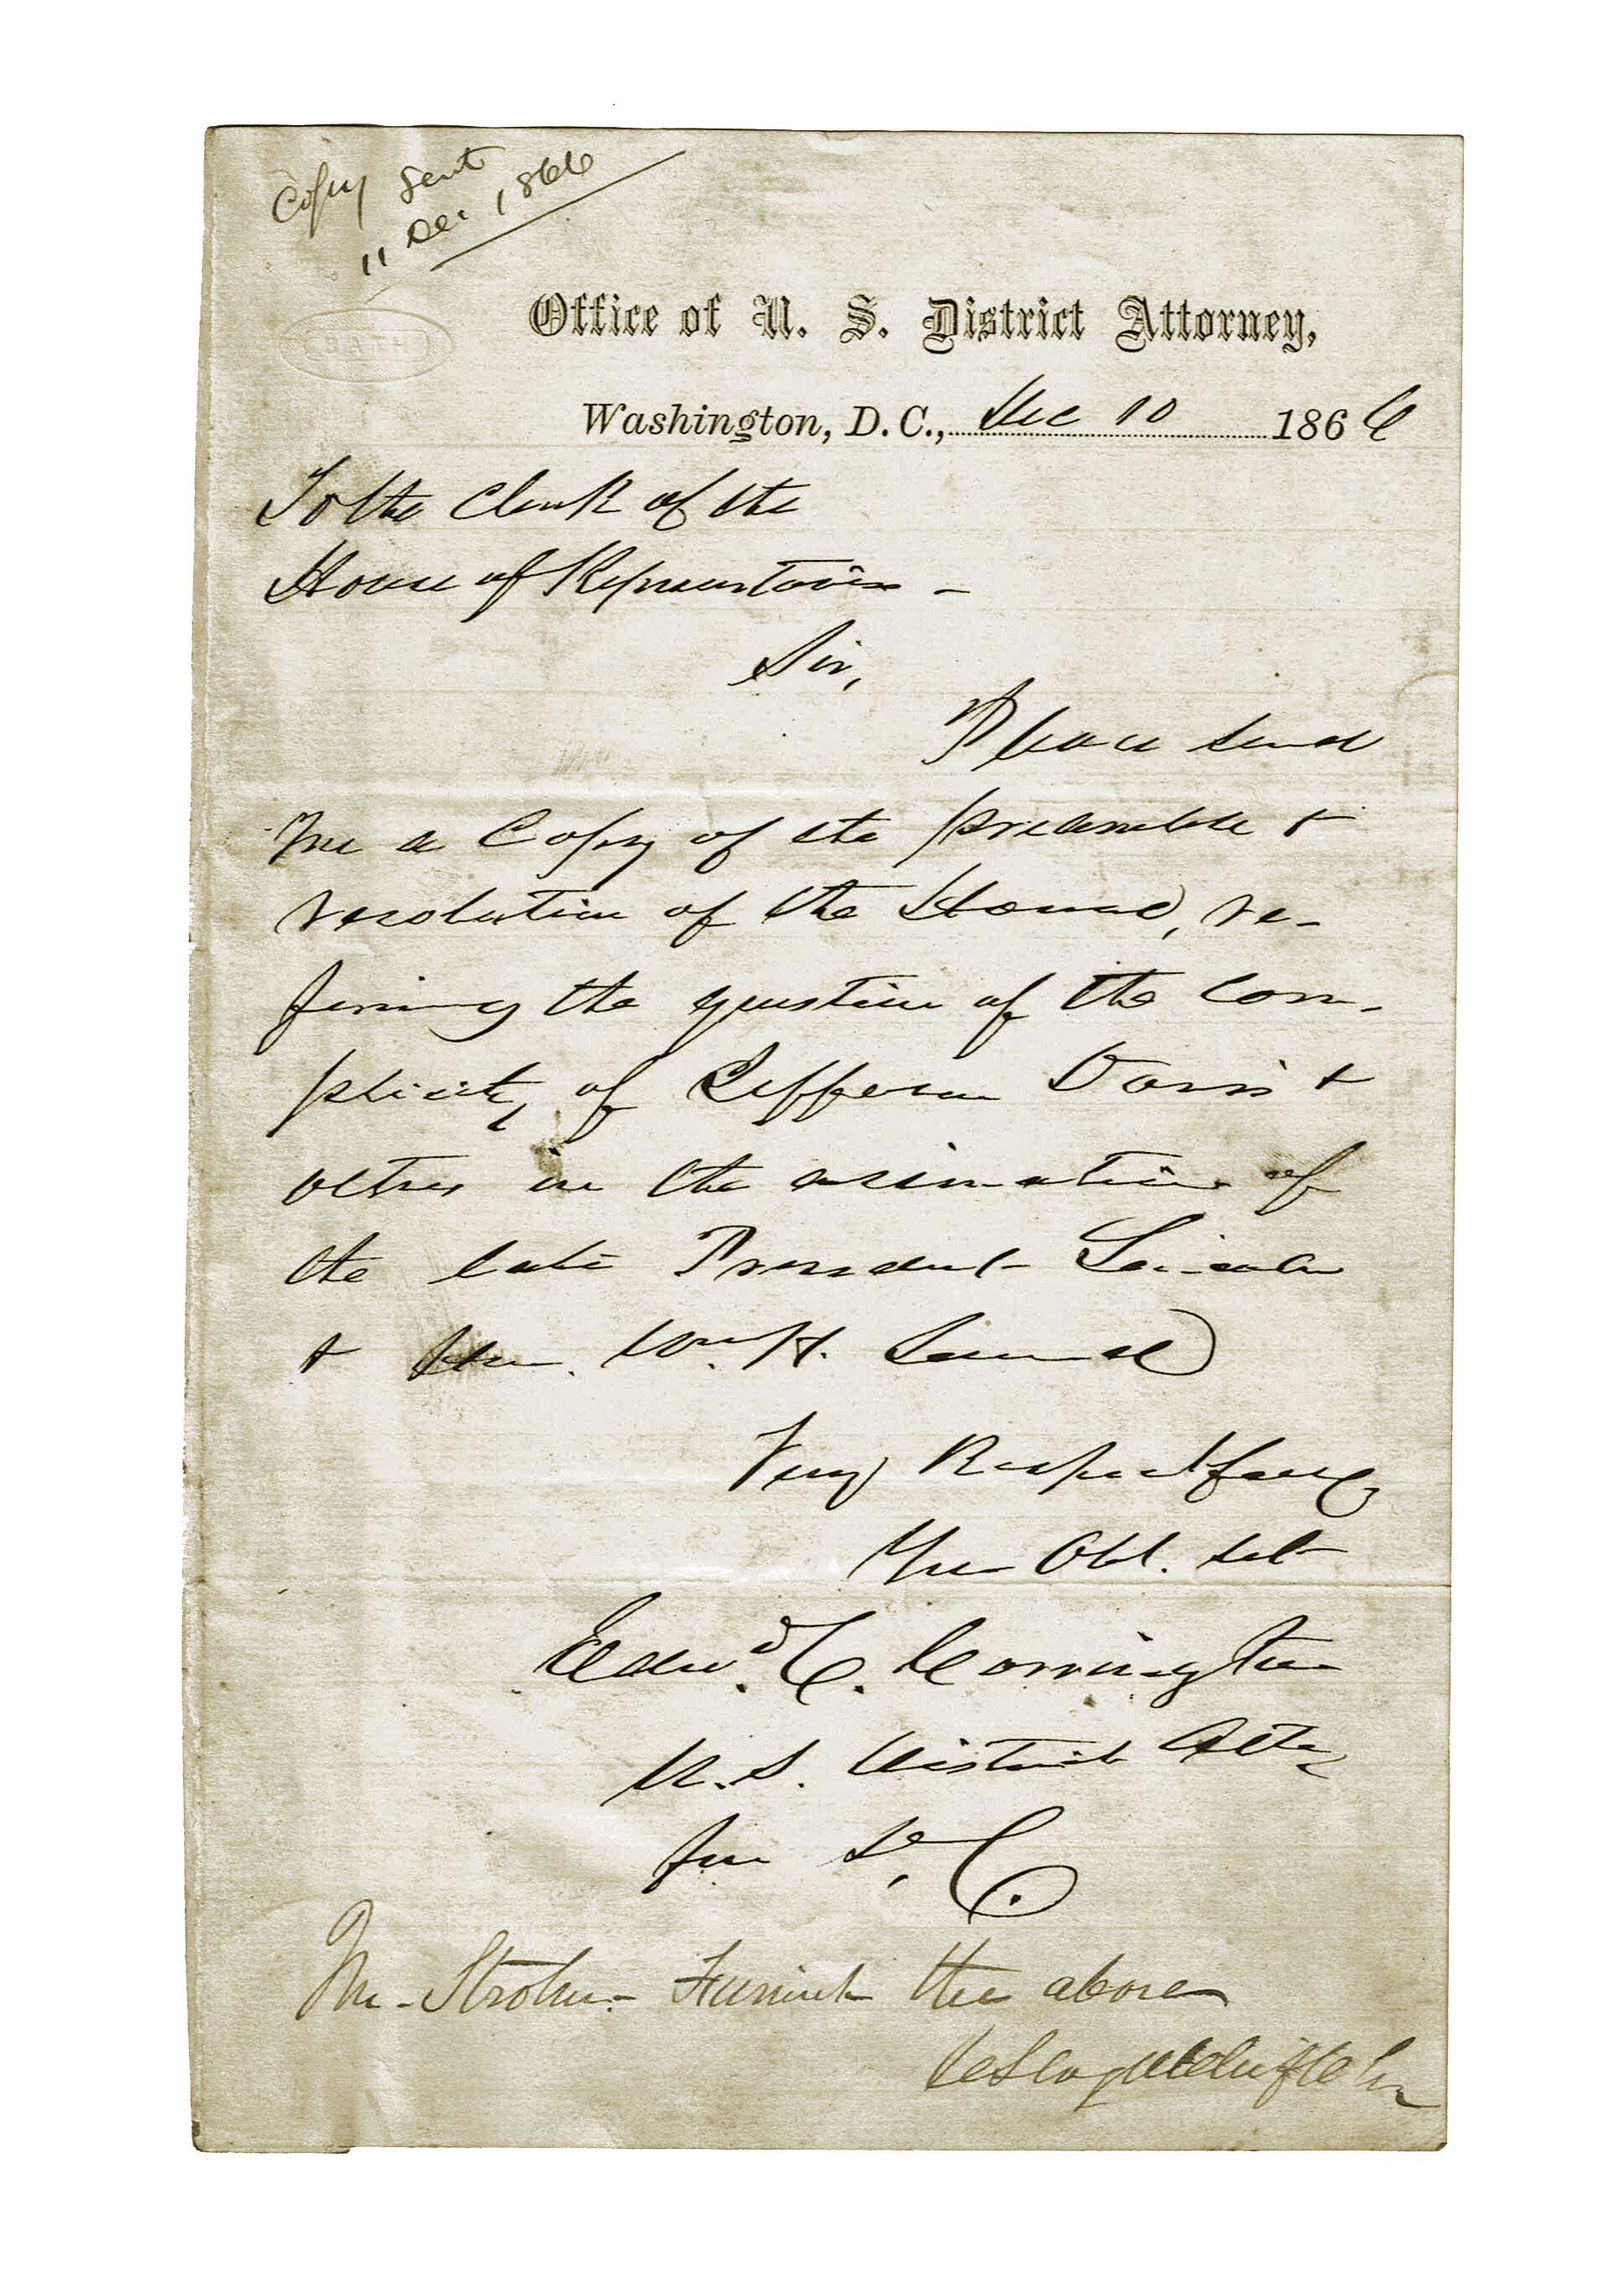 Copy sent
11 Dec 1866
Office of U. S. District Attorney,
Washington, D. C., Dec 10 1866
To the Clerk of the
House of Representatives -
Sir,
Please send
me a Copy of the preamble &
resolution of the House, re-
ferring the question of the Com-
plicity of Jefferson Davis &
others in the assination of
the late President Lincoln
& Hon. Wm H. Seward
Very Respectfully
Your Obt. svt
Edwd. C. Carrington
U.S. District Atty
for D.C.
Mr. Strohm Furnish the above